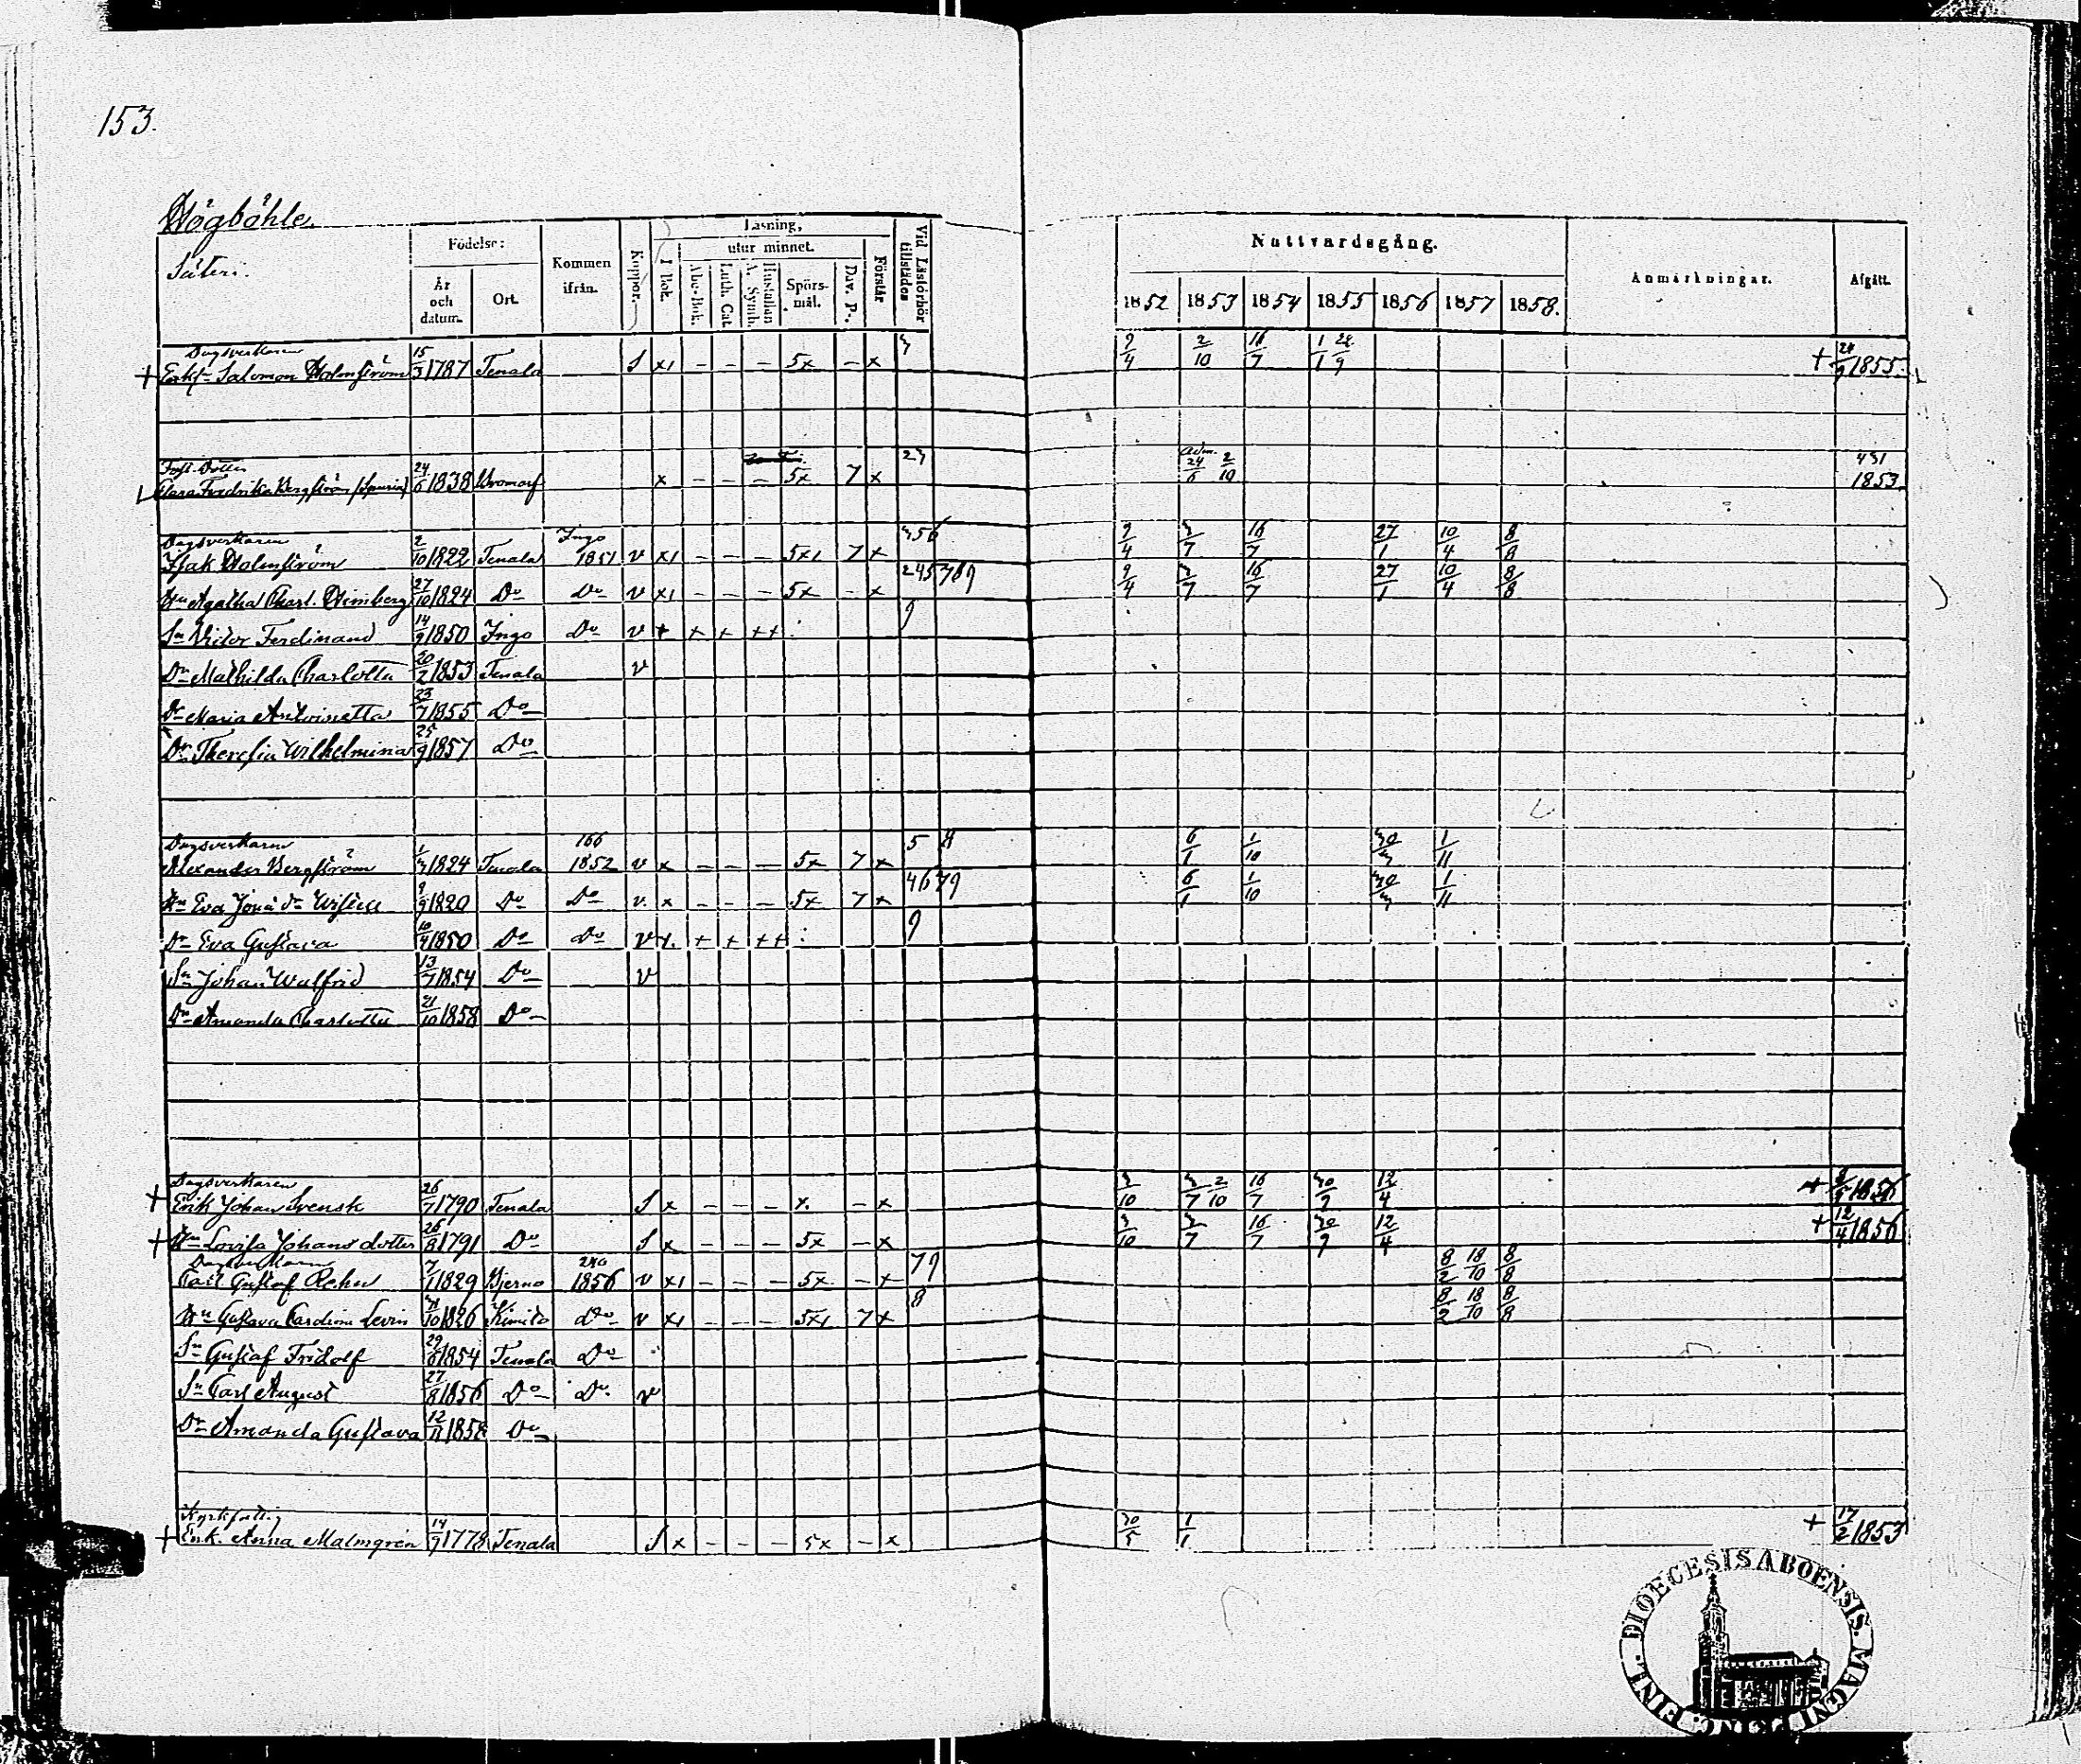 153.
Högböhle.
Säteri.
Födelse:
År och datum.
Ort.
Kommen ifrån.
Koppor.
Läsning,
I Bok.
utur minnet.
Abc-Bok.
Luth. Cat.
Hustaflan A. Symb.
Spörs-mål.
Dav. Ps.
Förstår
Vid Läsförhör tillstädes
Nattvardsgång.
1852 1853 1854 1855 1856 1857 1858.
Anmärkningar.
Afgått.
Dagsverkaren
+ Enkf. Salomon Holmström 15/3 1787 Tenala S x1 – – – 5x – x 3 9/4 2/10 16/7 1/1 28/9 + 28/9 1855.
Clara Fredrika Bergström 24/6 1838 Bromarf x – – – 5x 7 x 23 Adm. 24/6 2/10 431 1853.
Dagsverkaren
Isak Holmström 2/10 1822 Tenala Ingo 1851 v x1 – – – 5x1 7 x 356 9/4 3/7 16/7 27/1 10/4 8/8
Hu Agatha Charl. Himberg 27/10 1824 Do Do v x1 – – – 5x – x 245789 9/4 3/7 16/7 27/1 10/4 8/8
Sn Victor Ferdinand 14/9 1850 Ingo Do v + + + ++ 9
Dr Mathilda Charlotta 20/2 1853 Tenala v
Dr Maria Antoinetta 23/7 1855 Do
Dr Theresia Wilhelmina 25/9 1857 Do
Dagsverkaren
Alexander Bergström 1/3 1824 Tenala 166 1852 v x – – – 5x 7 x 5 8 6/1 1/10 30/3 1/11
Hu Eva 9/9 1820 Do Do v. x – – – 5x 7 x 4679 6/1 1/10 30/3 1/11
Dr Eva Gustava 10/4 1850 Do Do v + + ++ 9
Sn Johan Walfrid 13/7 1854 Do v
Dr Amanda Charlotta 21/10 1858 Do
Dagsverkaren
+ Erik Johan Svensk 26/7 1790 Tenala S x – – – x. – x 3/10 3/7 2/10 16/7 30/9 12/4 + 1856
+ Hu Lovisa Johans dotter 26/8 1791 Do S x – – – 5x – x 3/10 3/7 16/7 30/9 12/4 + 12/4 1856
Dagsverkaren
Carl Gustaf Rehn 7/1 1829 Bjerno 240 1856 v x1 – – – 5x – x 79 8/2 18/10 8/8
Hu Gustava Carolina Levin 31/10 1826 Kimito Do v x1 – – – 5x1 7 x 8 8/2 18/10 8/8
Sn Gustaf Fridolf 1854 Tenala Do
Sn Carl August 27/8 1856 Do Do v
Dr Amanda Gustava 12/11 1858 Do
Kyrkfattig
+ Enk. Anna Malmgrén 14/9 1778 Tenala S x – – – 5x – x 30/5 1/1 + 17/2 1853
DIOECESIS ABOENSIS. MAGNI